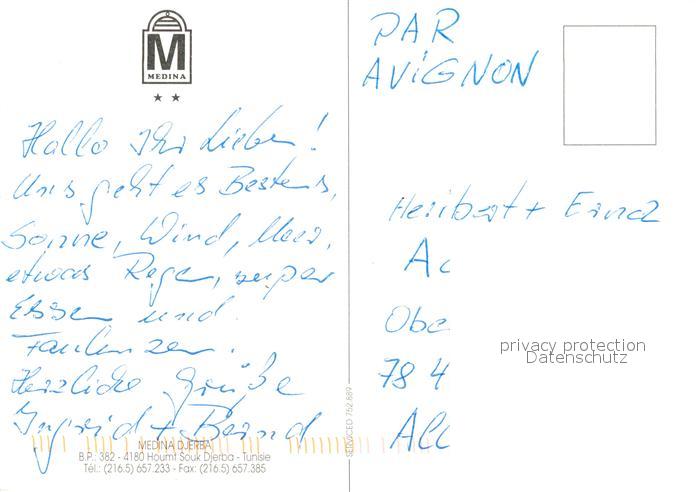 M
MEDINA
★ ★
Hallo Ihr Lieben!
Uns geht es Bestens,
Sonne, Wind, Meer,
etwas Regen, super
Essen und
Faulenzen.
Herzliche Grüße
Ingrid + Bernd
MEDINA DJERBA
B.P.: 382 - 4180 Houmt Souk Djerba - Tunisie
Tél.: (216.5) 657.233 - Fax: (216.5) 657.385
PAR
AViGNON
Heribert +
Obe
78 4
privacy protection
Datenschutz